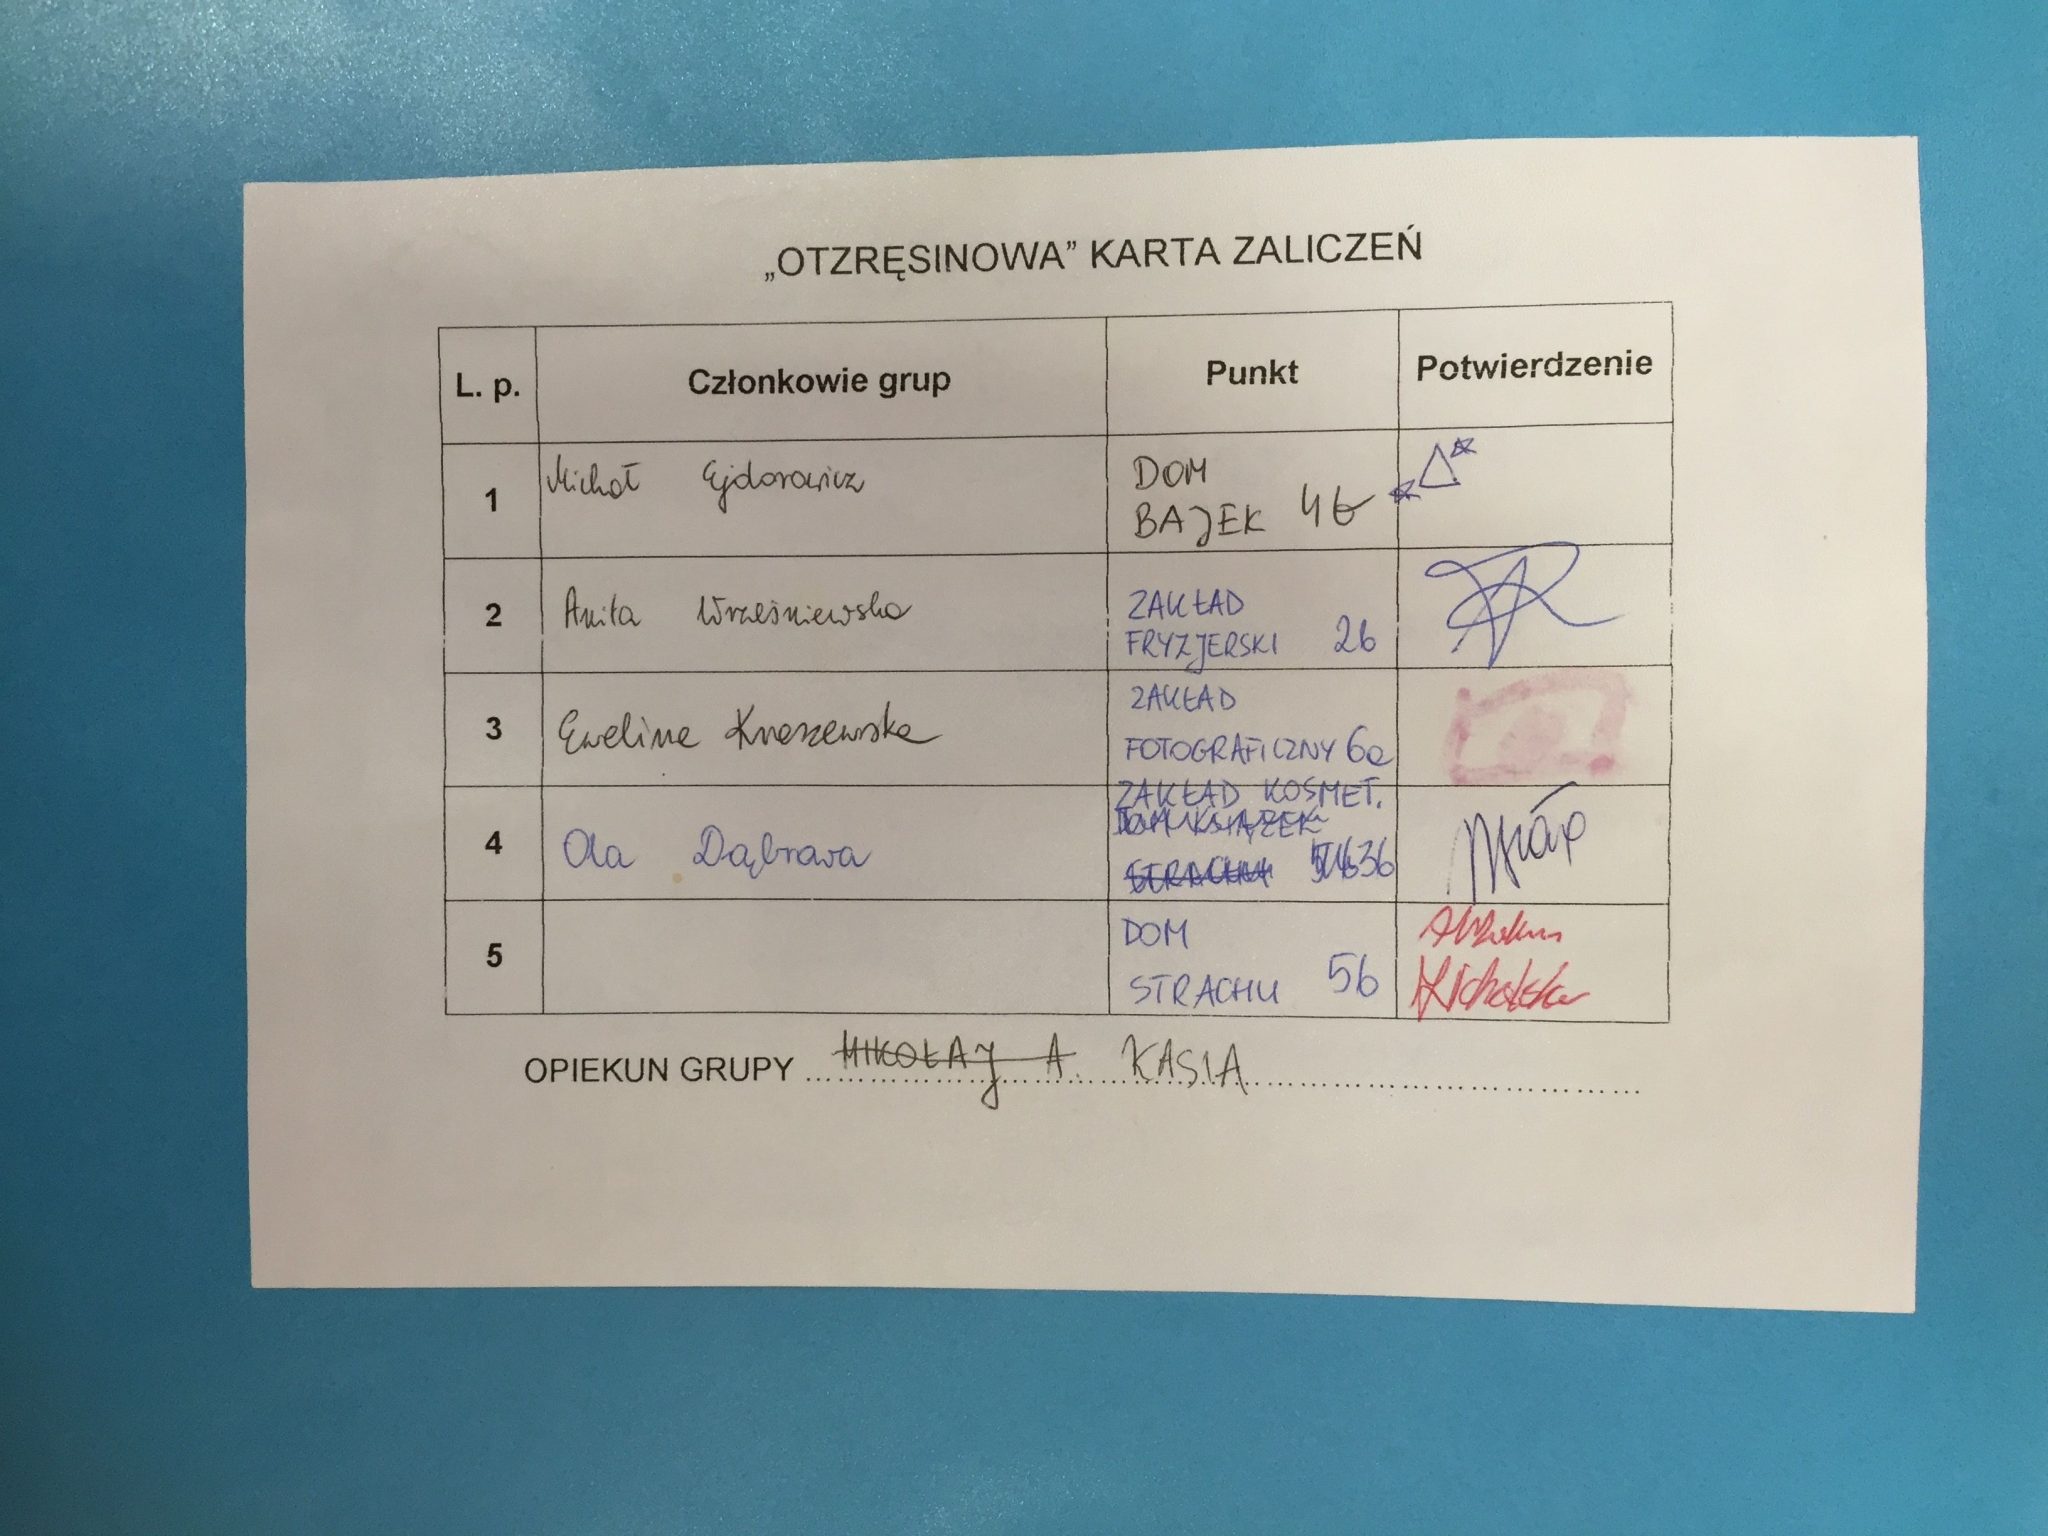 „OTZRĘSINOWA” KARTA ZALICZEŃ
L. p. Członkowie grup Punkt Potwierdzenie
1 Michał Ejdorowicz DOM
BAJEK 4b
2 Anita Wrześniewska ZAKŁAD
FRYZJERSKI 2b
3 Ewelina Kraszewska ZAKŁAD
FOTOGRAFICZNY 6a
4 Ola Dąbrowa ZAKŁAD KOSMET.
DOM KSIĄŻEK
STRACHU 3b
5 DOM
STRACHU 5b
OPIEKUN GRUPY MIKOŁAJ A. KASIA